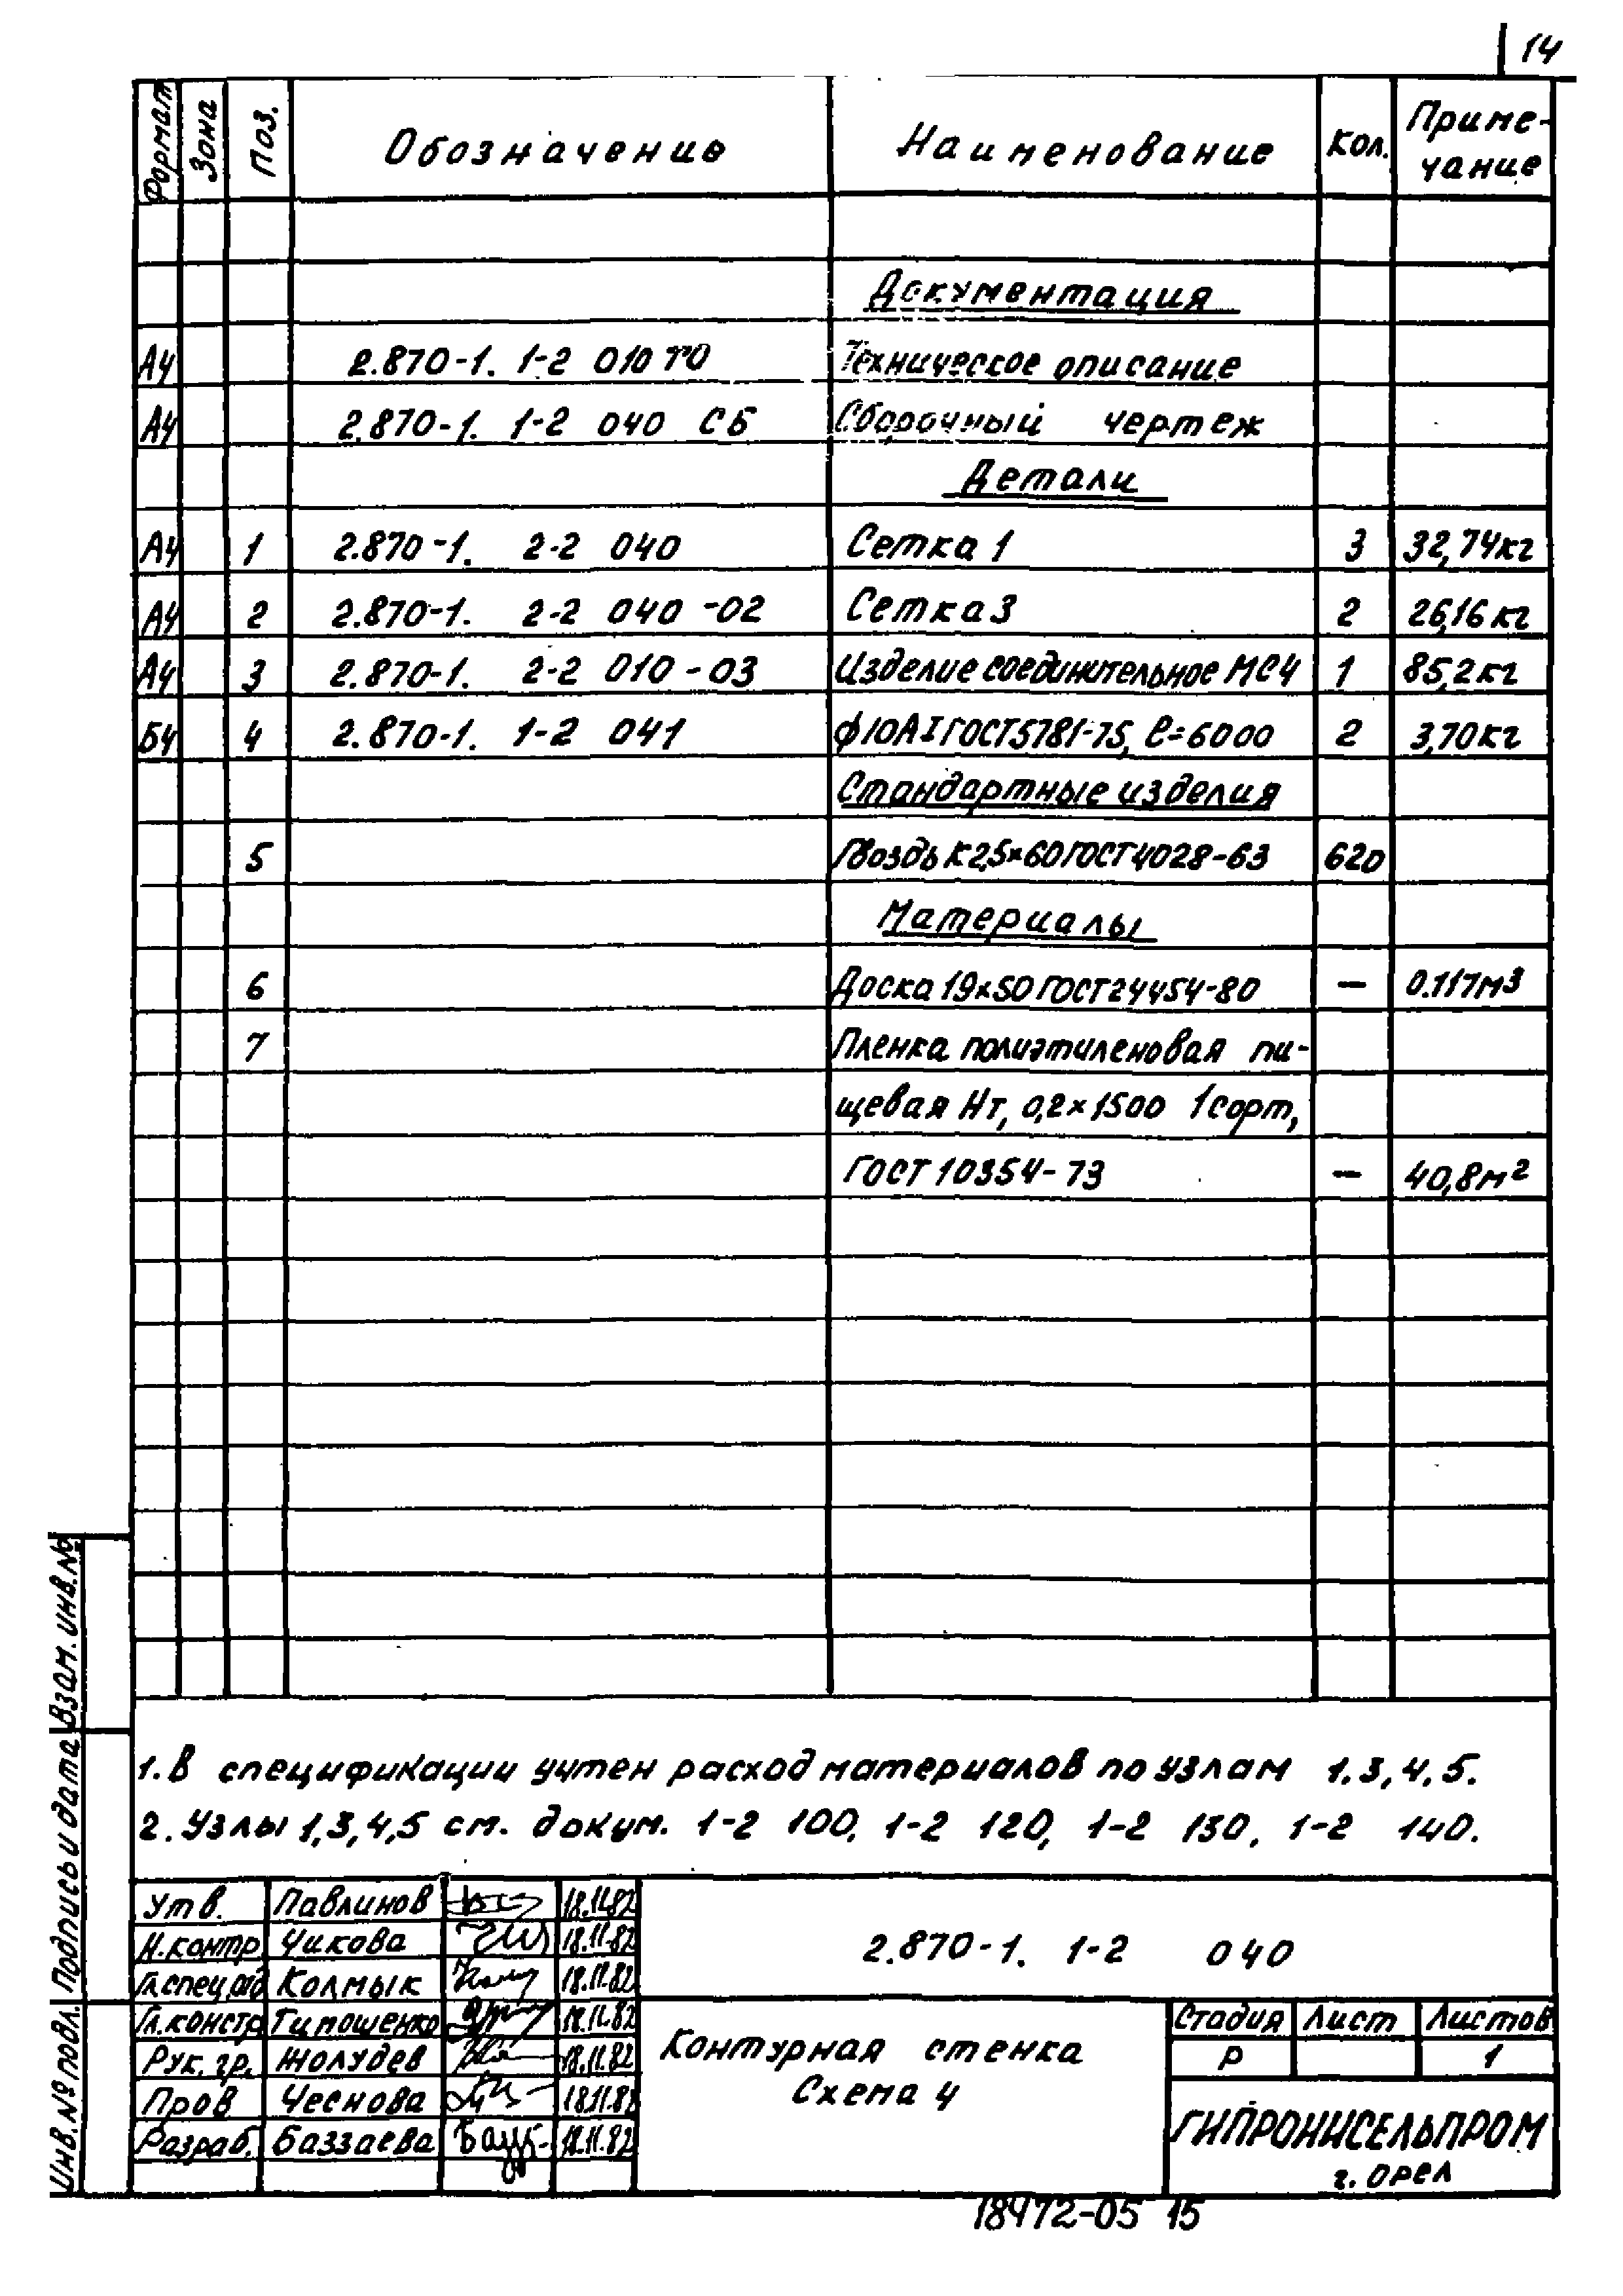 14
Формат Зона Поз. Обозначение Наименование Кол. Приме-
чание
Документация
А4 2.870-1. 1-2 010 ТО Техническое описание
А4 2.870-1. 1-2 040 СБ Сборочный чертеж
Детали
А4 1 2.870-1. 2-2 040 Сетка 1 3 32,74кг
А4 2 2.870-1. 2-2 040-02 Сетка 3 2 26,16кг
А4 3 2.870-1. 2-2 010-03 Изделие соединительное МС4 1 85,2кг
Б4 4 2.870-1. 1-2 041 ф10АI ГОСТ5781-75, ℓ=6000 2 3,70кг
Стандартные изделия
5 Гвоздь К2,5×60 ГОСТ 4028-63 620
Материалы
6 Доска 19×50 ГОСТ 24454-80 — 0.117м³
7 Пленка полиэтиленовая пи-
щевая Нт, 0,2×1500 1сорт,
ГОСТ 10354-73 — 40,8м²
1. В спецификации учтен расход материалов по узлам 1.3,4,5.
2. Узлы 1,3,4,5 см. докум. 1-2 100, 1-2 120, 1-2 130, 1-2 140.
Утв. Павлинов 18.11.82
Н.контр Чикова 18.11.82
Гл.спец. Колмык 18.11.82
Гл.констр Тимошенко 18.11.82
Рук. гр. Жолудев 18.11.82
Пров Чеснова 18.11.82
Разраб. Баззаева 18.11.82
2.870-1. 1-2 040
Контурная стенка
Схема 4
Стадия Лист Листов
Р 1
ГИПРОНИСЕЛЬПРОМ
г. Орел
Инв. № подл. Подпись и дата Взам. инв. №
18472-05 15